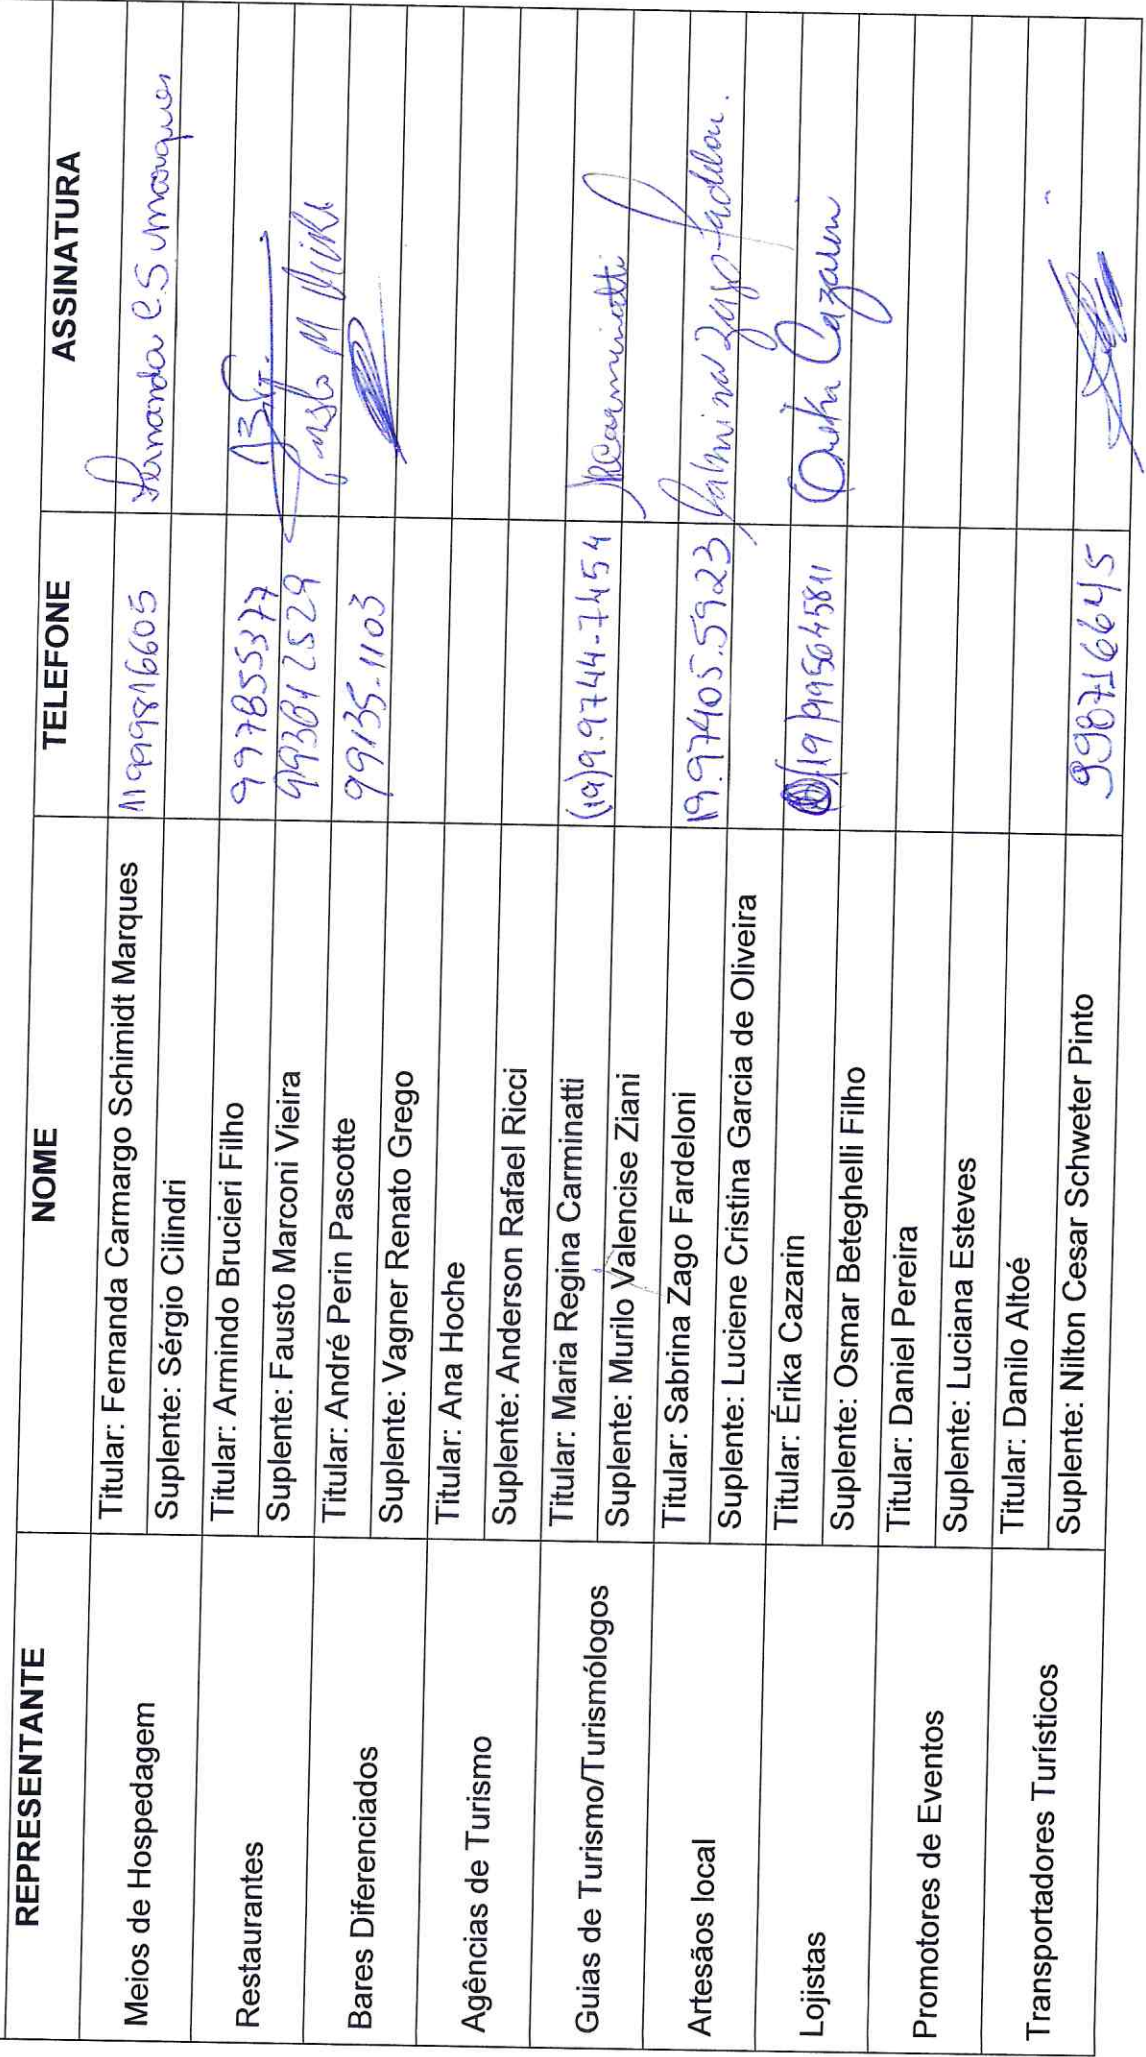 REPRESENTANTE NOME TELEFONE ASSINATURA
Meios de Hospedagem
Titular: Fernanda Carmargo Schimidt Marques 11 999816605 Fernanda C S Marques
Suplente: Sérgio Cilindri
Restaurantes
Titular: Armindo Brucieri Filho 997855377
Suplente: Fausto Marconi Vieira 993842529 Fausto M Vieira
Bares Diferenciados
Titular: André Perin Pascotte 99135-1103
Suplente: Vagner Renato Grego
Agências de Turismo
Titular: Ana Hoche
Suplente: Anderson Rafael Ricci
Guias de Turismo/Turismólogos
Titular: Maria Regina Carminatti (19)9.9744-7454 MRCarminatti
Suplente: Murilo Valencise Ziani
Artesãos local
Titular: Sabrina Zago Fardeloni 19.97405.5923 Sabrina Zago Fardeloni
Suplente: Luciene Cristina Garcia de Oliveira
Lojistas
Titular: Érika Cazzarin (19)995645811 Erika Cazarin
Suplente: Osmar Beteghelli Filho
Promotores de Eventos
Titular: Daniel Pereira
Suplente: Luciana Esteves
Transportadores Turísticos
Titular: Danilo Altoé
Suplente: Nilton Cesar Schweter Pinto 998716645